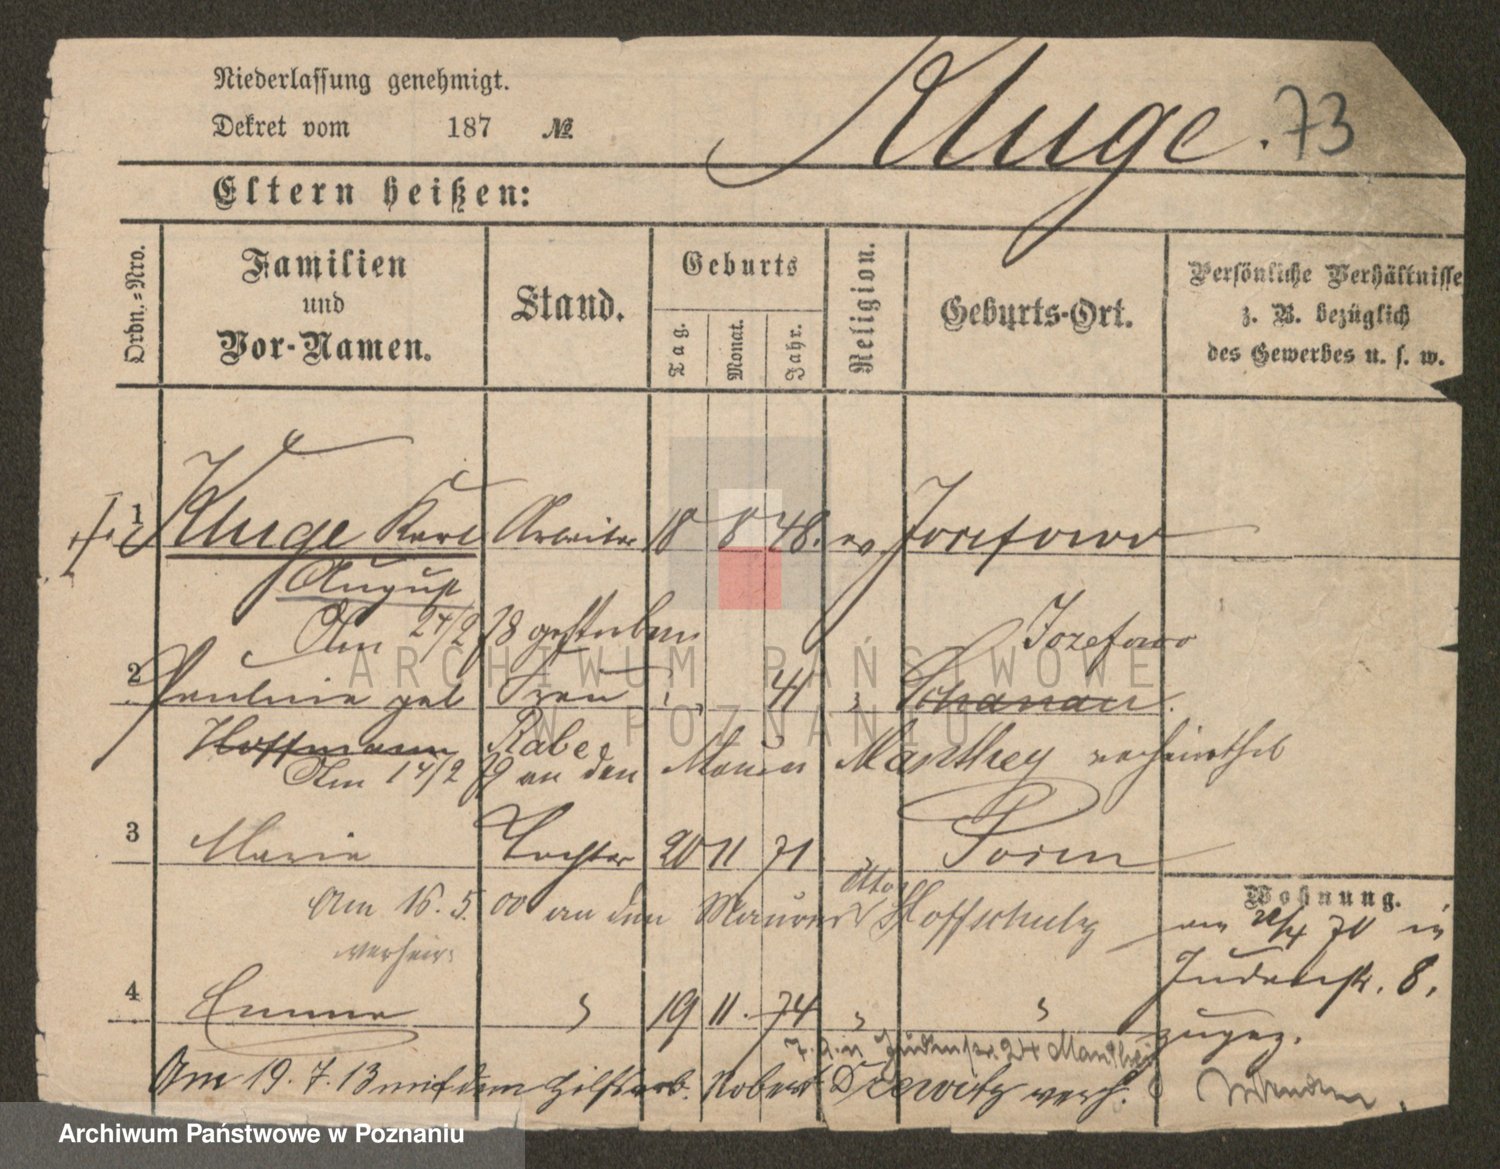 Niederlassung genehmigt.
Dekret vom 187 №
Kluge. 73
Eltern heißen:
Ordn.=Nro.
Familien
und
Vor-Namen.
Stand.
Geburts
Tag.
Monat.
Jahr.
Religion.
Geburts-Ort.
Persönliche Verhältnisse
z. B. bezüglich
des Gewerbes u. s. w.
1 Kluge Karl Arbeiter 18 8 48. ev Jozefowo
August
Am 24/2 78 gestorben
Jozefowo
2 Pauline geb Frau 41 Schanau
Hoffmann Rabe
Am 14/2 79 an den Maurer Manthey verheirathet
3 Marie Tochter 20 11 71 Posen
Am 16. 5. 00 an den Maurer Otto Hoffschulz
verheir:
Wohnung.
70 in
Judenstr. 8.
zugez.
4 Emma 19 11. 74
Judenstr. 24 Manthey
Am 19. 7. 13 mit dem Hilfsarb. Robert Drewitz verh.
ARCHIWUM PAŃSTWOWE
W POZNANIU
Archiwum Państwowe w Poznaniu